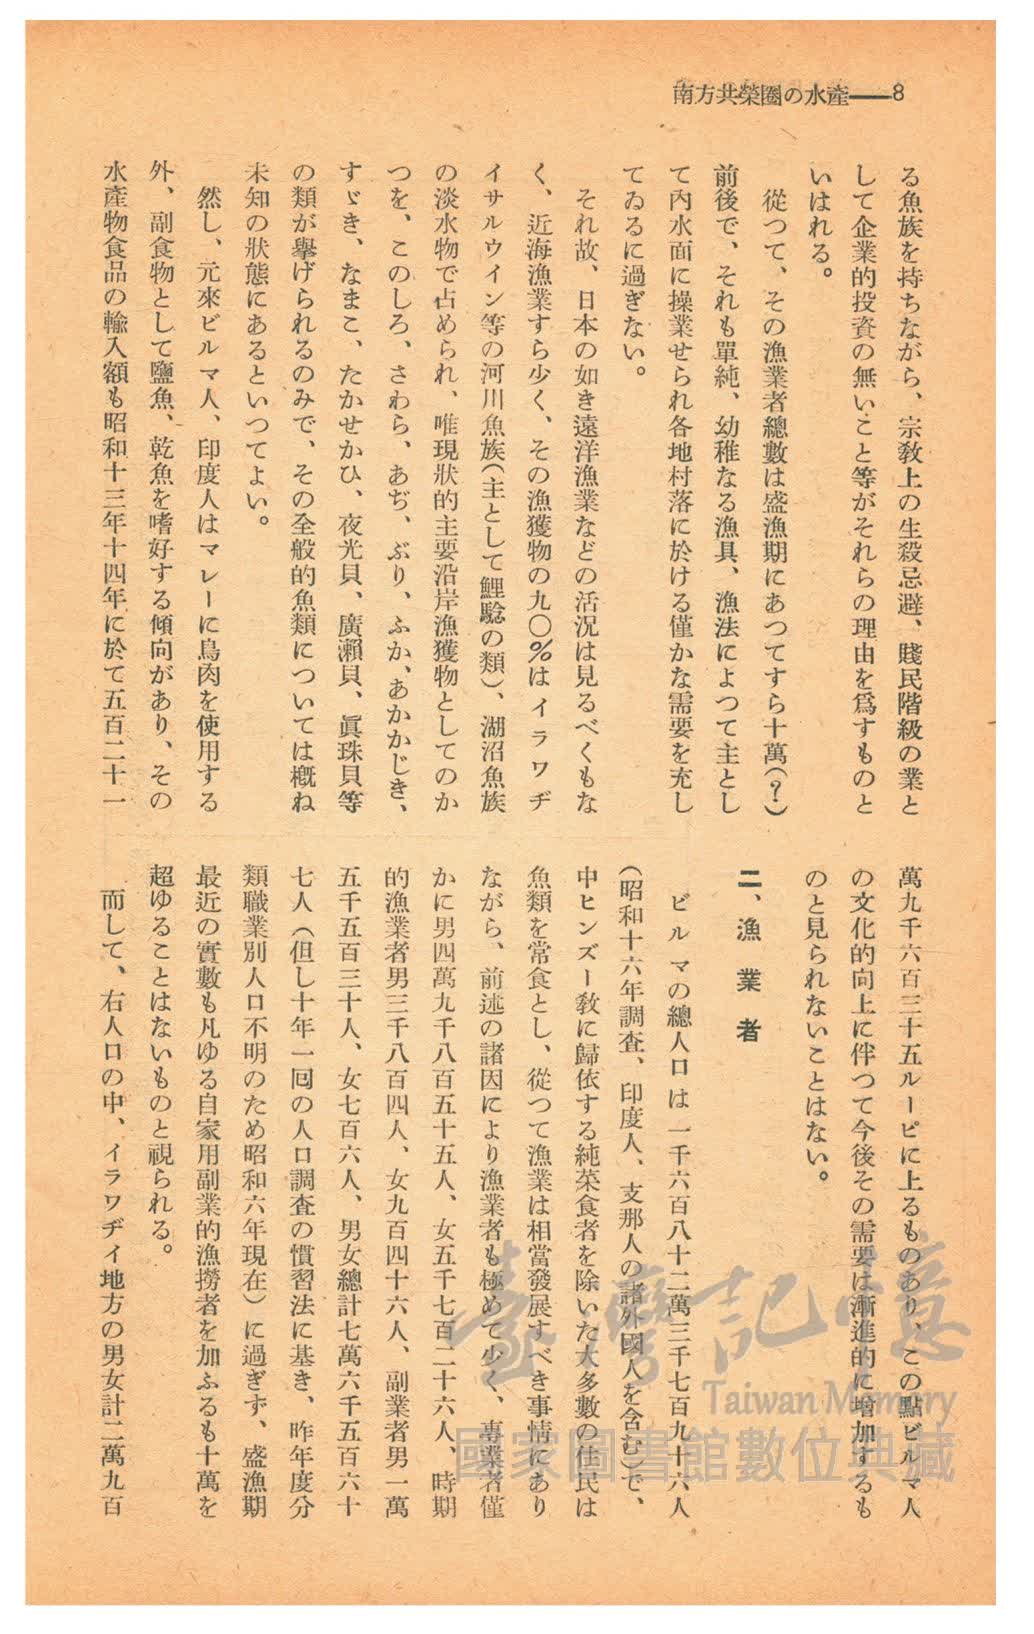 南方共榮圈の水產――8
る魚族を持ちながら、宗敎上の生殺忌避、賤民階級の業と
して企業的投資の無いこと等がそれらの理由を爲すものと
いはれる。
從つて、その漁業者總數は盛漁期にあつてすら十萬(?)
前後で、それも單純、幼稚なる漁具、漁法によつて主とし
て內水面に操業せられ各地村落に於ける僅かな需要を充し
てゐるに過ぎない。
それ故、日本の如き遠洋漁業などの活況は見るべくもな
く、近海漁業すら少く、その漁獲物の九〇%はイラワヂ
イサルウイン等の河川魚族(主として鯉鯰の類)、湖沼魚族
の淡水物で占められ、唯現狀的主要沿岸漁獲物としてのか
つを、このしろ、さわら、あぢ、ぶり、ふか、あかかじき、
すゞき、なまこ、たかせかひ、夜光貝、廣瀨貝、眞珠貝等
の類が擧げられるのみで、その全般的魚類については槪ね
未知の狀態にあるといつてよい。
然し、元來ビルマ人、印度人はマレーに鳥肉を使用する
外、副食物として鹽魚、乾魚を嗜好する傾向があり、その
水產物食品の輸入額も昭和十三年十四年に於て五百二十一
萬九千六百三十五ルーピに上るものあり、この點ビルマ人
の文化的向上に伴つて今後その需要は漸進的に增加するも
のと見られないことはない。
二、漁業者
ビルマの總人口は一千六百八十二萬三千七百九十六人
(昭和十六年調査、印度人、支那人の諸外國人を含む)で、
中ヒンズー敎に歸依する純菜食者を除いた大多數の住民は
魚類を常食とし、從つて漁業は相當發展すべき事情にあり
ながら、前述の諸因により漁業者も極めて少く、專業者僅
かに男四萬九千八百五十五人、女五千七百二十六人、時期
的漁業者男三千八百四人、女九百四十六人、副業者男一萬
五千五百三十人、女七百六人、男女總計七萬六千五百六十
七人(但し十年一回の人口調査の慣習法に基き、昨年度分
類職業別人口不明のため昭和六年現在)に過ぎず、盛漁期
最近の實數も凡ゆる自家用副業的漁撈者を加ふるも十萬を
超ゆることはないものと視られる。
而して、右人口の中、イラワヂイ地方の男女計二萬九百
臺灣記憶
Taiwan Memory
國家圖書館數位典藏